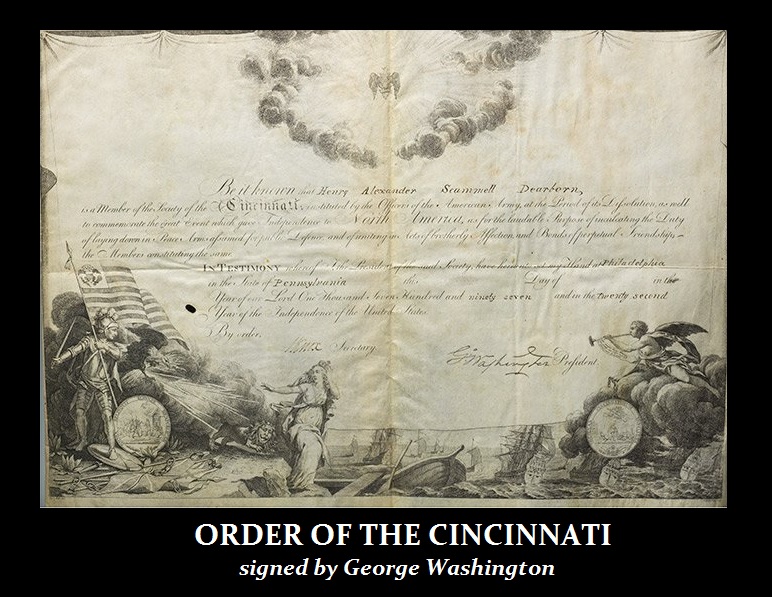 Be it known that Henry Alexander Scammell Dearborn,
is a Member of the Society of the Cincinnati, instituted by the Officers of the American Army, at the Period of its Dissolution, as well
to commemorate the great Event which gave Independence to North America, as for the laudable Purpose of inculcating the Duty
of laying down in Peace Arms assumed for public Defence, and of uniting in Acts of brotherly Affection, and Bonds of perpetual Friendship,
the Members constituting the same.
IN TESTIMONY whereof I, the President of the said Society, have hereunto set my Hand at Philadelphia
in the State of Pennsylvania this Day of in the
Year of our Lord One Thousand Seven Hundred and ninety seven and in the twenty second
Year of the Independence of the United States.
By order,
Secretary. G. Washington President.
ORDER OF THE CINCINNATI
signed by George Washington